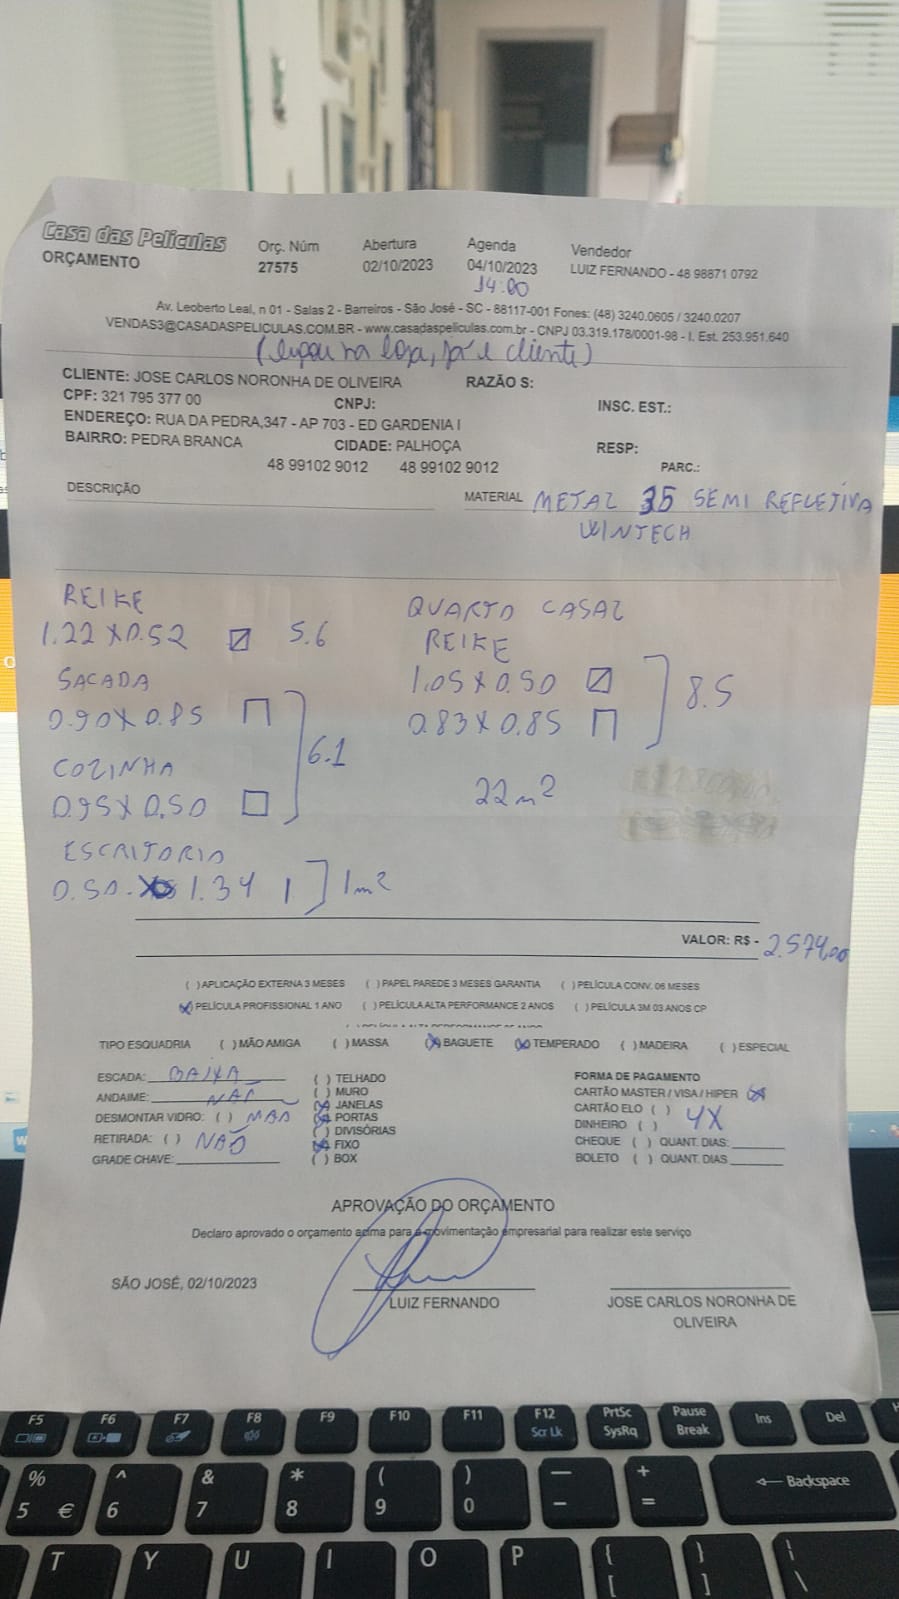 Casa das Películas
ORÇAMENTO
Orç. Núm
27575
Abertura
02/10/2023
Agenda
04/10/2023
14:00
Vendedor
LUIZ FERNANDO - 48 98871 0792
Av. Leoberto Leal, n 01 - Salas 2 - Barreiros - São José - SC - 88117-001 Fones: (48) 3240.0605 / 3240.0207
VENDAS3@CASADASPELICULAS.COM.BR - www.casadaspeliculas.com.br - CNPJ 03.319.178/0001-98 - I. Est. 253.951.640
(Ligou na loja, já é cliente)
CLIENTE: JOSE CARLOS NORONHA DE OLIVEIRA RAZÃO S:
CPF: 321 795 377 00 CNPJ: INSC. EST.:
ENDEREÇO: RUA DA PEDRA,347 - AP 703 - ED GARDENIA I
BAIRRO: PEDRA BRANCA CIDADE: PALHOÇA RESP:
48 99102 9012 48 99102 9012 PARC.:
DESCRIÇÃO MATERIAL METAL 35 SEMI REFLETIVA
WINTECH
REIKE
1.22 X 0.52 5.6
SACADA
0.90 X 0.85
6.1
COZINHA
0.95 X 0.50
ESCRITORIO
0.50 - X 1.34 1m²
QUARTO CASAL
REIKE
1.05 X 0.50
8.5
0.83 X 0.85
22m²
VALOR: R$ - 2.574,00
( ) APLICAÇÃO EXTERNA 3 MESES ( ) PAPEL PAREDE 3 MESES GARANTIA ( ) PELÍCULA CONV. 06 MESES
(X) PELÍCULA PROFISSIONAL 1 ANO ( ) PELÍCULA ALTA PERFORMANCE 2 ANOS ( ) PELÍCULA 3M 03 ANOS CP
TIPO ESQUADRIA ( ) MÃO AMIGA ( ) MASSA (X) BAGUETE (X) TEMPERADO ( ) MADEIRA ( ) ESPECIAL
ESCADA: BAIXA
ANDAIME: NÃO
DESMONTAR VIDRO: ( ) NÃO
RETIRADA: ( ) NÃO
GRADE CHAVE:
( ) TELHADO
( ) MURO
(X) JANELAS
(X) PORTAS
( ) DIVISÓRIAS
(X) FIXO
( ) BOX
FORMA DE PAGAMENTO
CARTÃO MASTER / VISA / HIPER (X)
CARTÃO ELO ( ) 4X
DINHEIRO ( )
CHEQUE ( ) QUANT. DIAS:
BOLETO ( ) QUANT. DIAS
APROVAÇÃO DO ORÇAMENTO
Declaro aprovado o orçamento acima para a movimentação empresarial para realizar este serviço
SÃO JOSÉ, 02/10/2023
LUIZ FERNANDO
JOSE CARLOS NORONHA DE
OLIVEIRA
F5 F6 F7 F8 F9 F10 F11 F12 PrtSc Pause Ins Del
Scr Lk SysRq Break
% ^ & * ( ) — + Backspace
5 € 6 7 8 9 0 - =
T Y U I O P { }
[ ] \